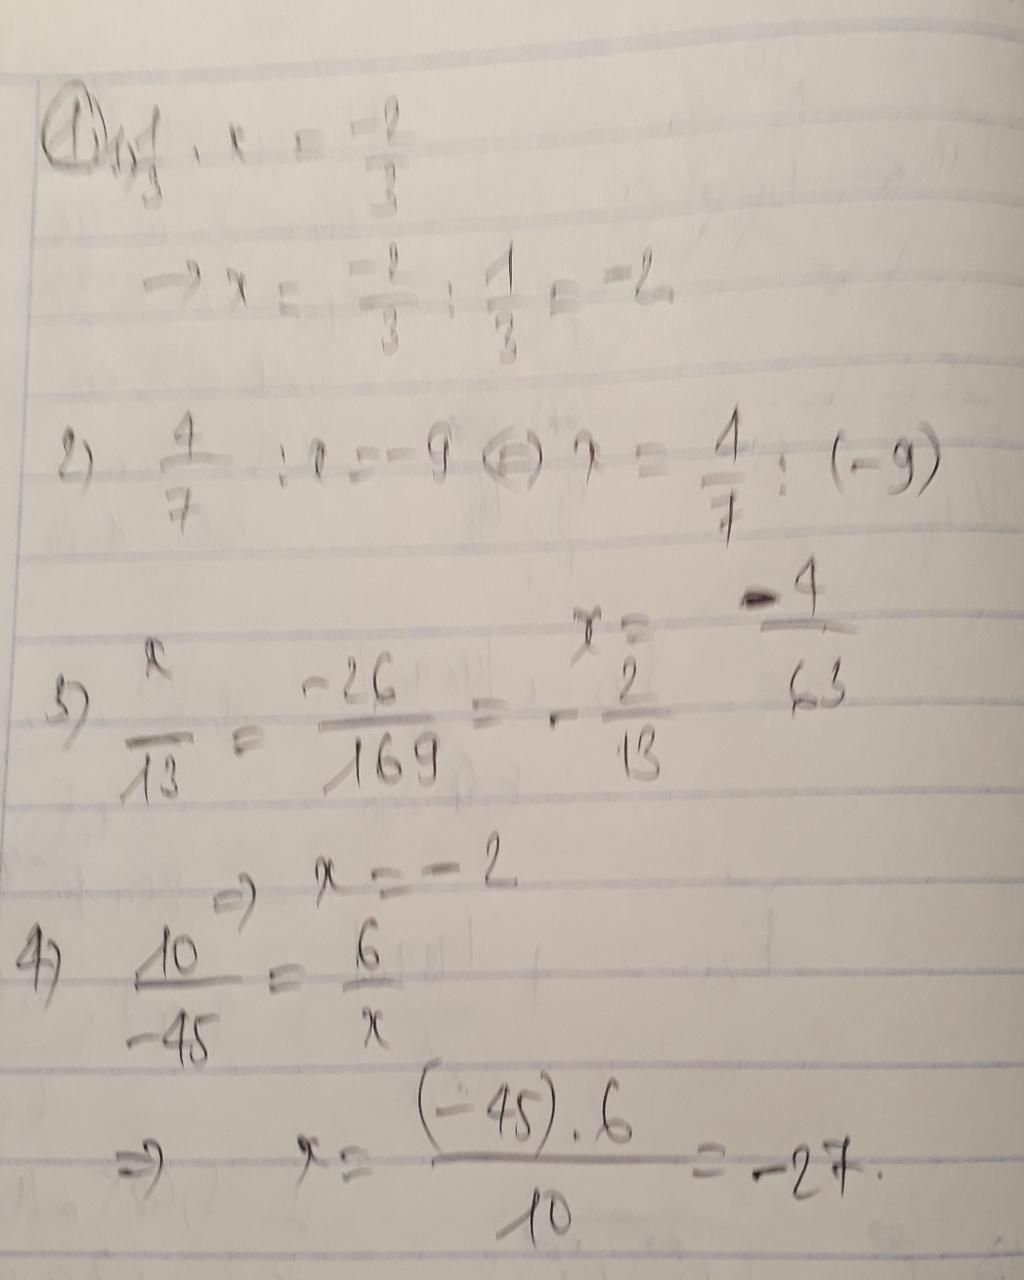 ① 1) 1/3 . x = -2/3
→ x = -2/3 : 1/3 = -2
2) 4/7 : x = -9 (=) x = 4/7 : (-9)
x = -4/63
3) x/13 = -26/169 = - 2/13
=) x = -2
4) 10/-45 = 6/x
=) x = (-45).6/10 = -27.